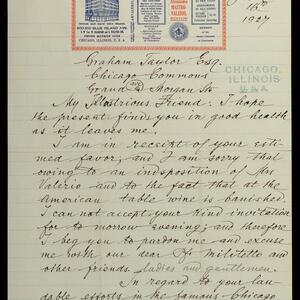 16th
1927
800-810 BLUE ISLAND AVE.
CHICAGO, ILLINOIS, U.S.A.
MASTRO-
VALERIO
CHICAGO, ILL.
CHICAGO,
ILLINOIS
USA
Graham Taylor Esq.
Chicago Commons
Grand Ave & Morgan St.
My Illustrious Friend. I hope
the present finds you in good health
as it leaves me.
I am in receipt of your esti-
med favor; and I am sorry that
owing to an indisposition of Mrs
Valerio and to the fact that at the
american table wine is banished,
I can not accept your kind invitation
for to morrow evening; and therefore
I beg you to pardon me and excuse
me with our dear Militello and
other friends ladies and gentlemen.
In regard to your lau-
dable efforts in the famous Chicago